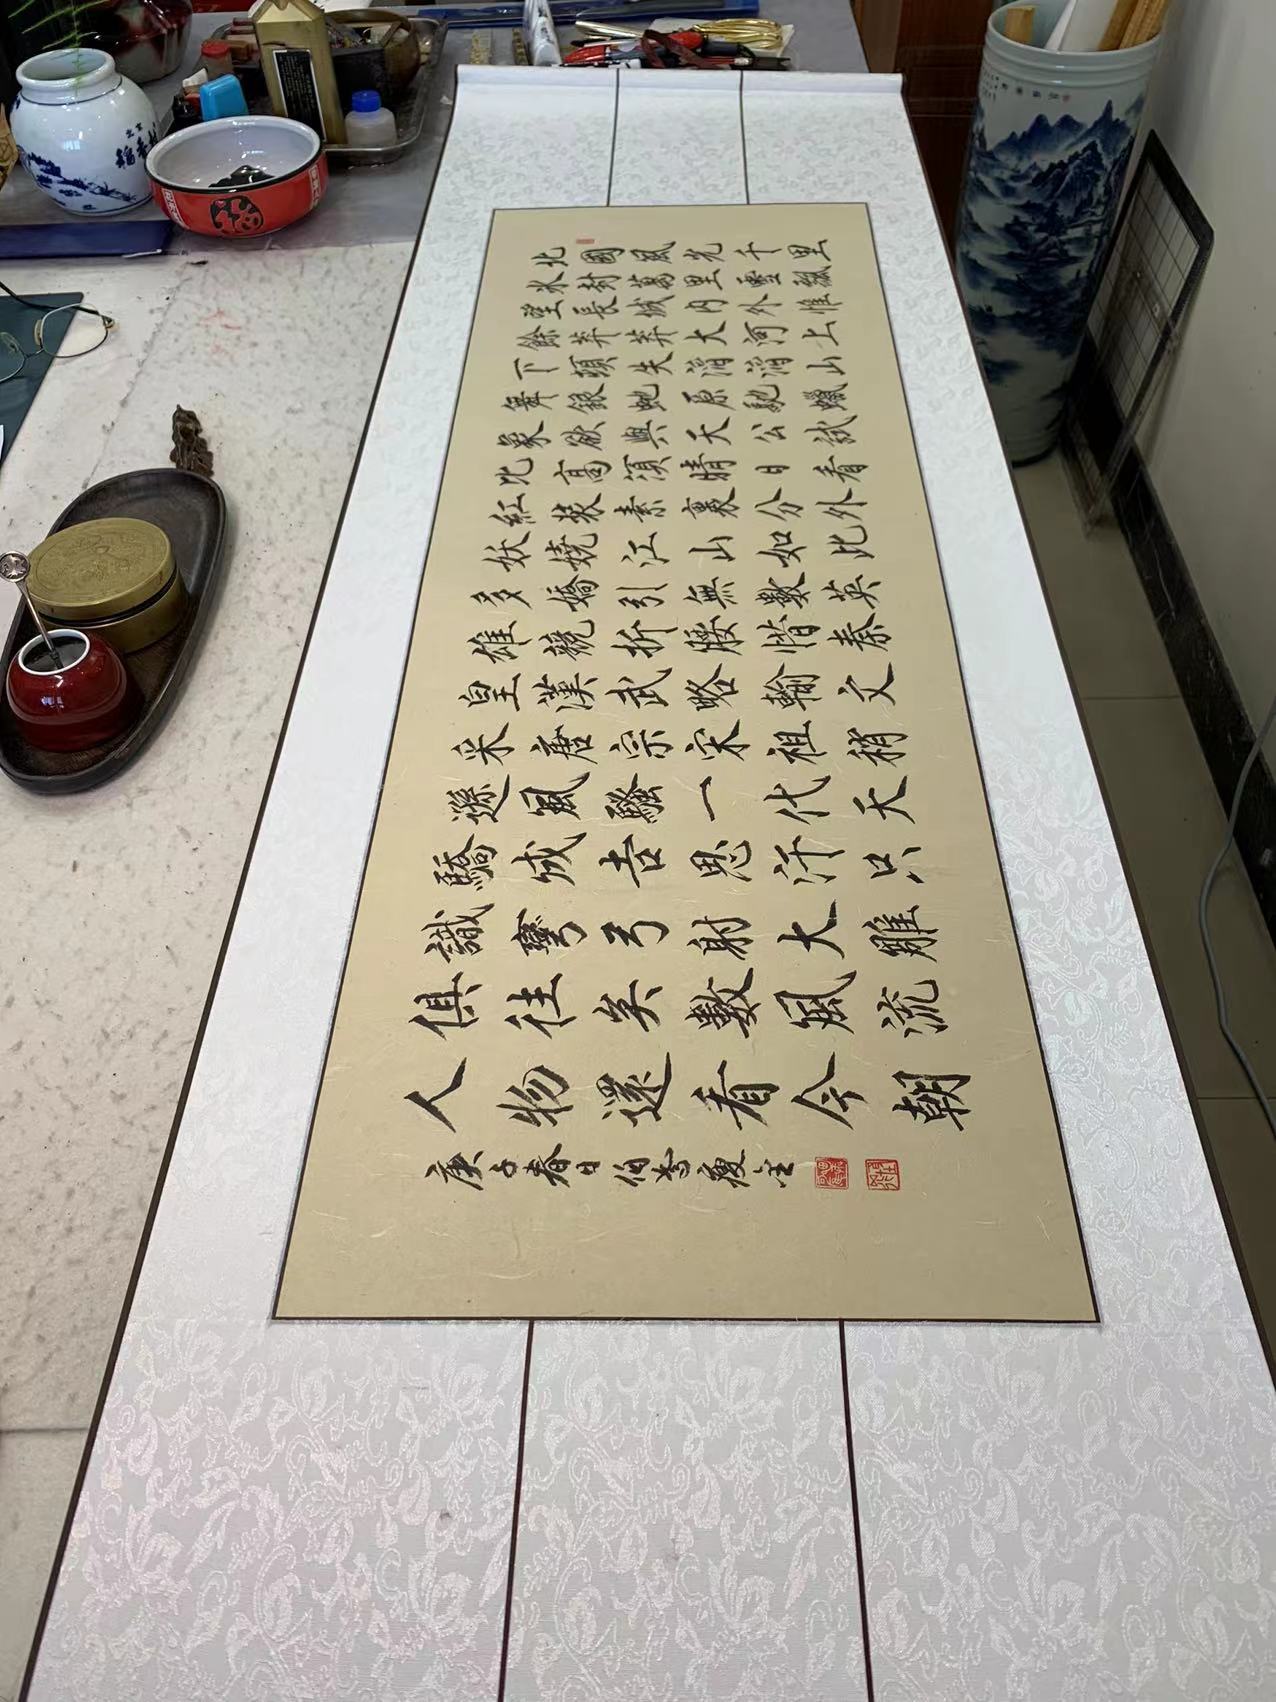 北國風光千里
冰封萬里雪飄
望長城內外惟
餘莽莽大河上
下頓失滔滔山
舞銀蛇原馳蠟
象欲與天公試
比高須晴日看
紅裝素裹分外
妖嬈江山如此
多嬌引無數英
雄競折腰惜秦
皇漢武略輸文
采唐宗宋祖稍
遜風騷一代天
驕成吉思汗只
識彎弓射大雕
俱往矣數風流
人物還看今朝
庚子春日伯瘦金